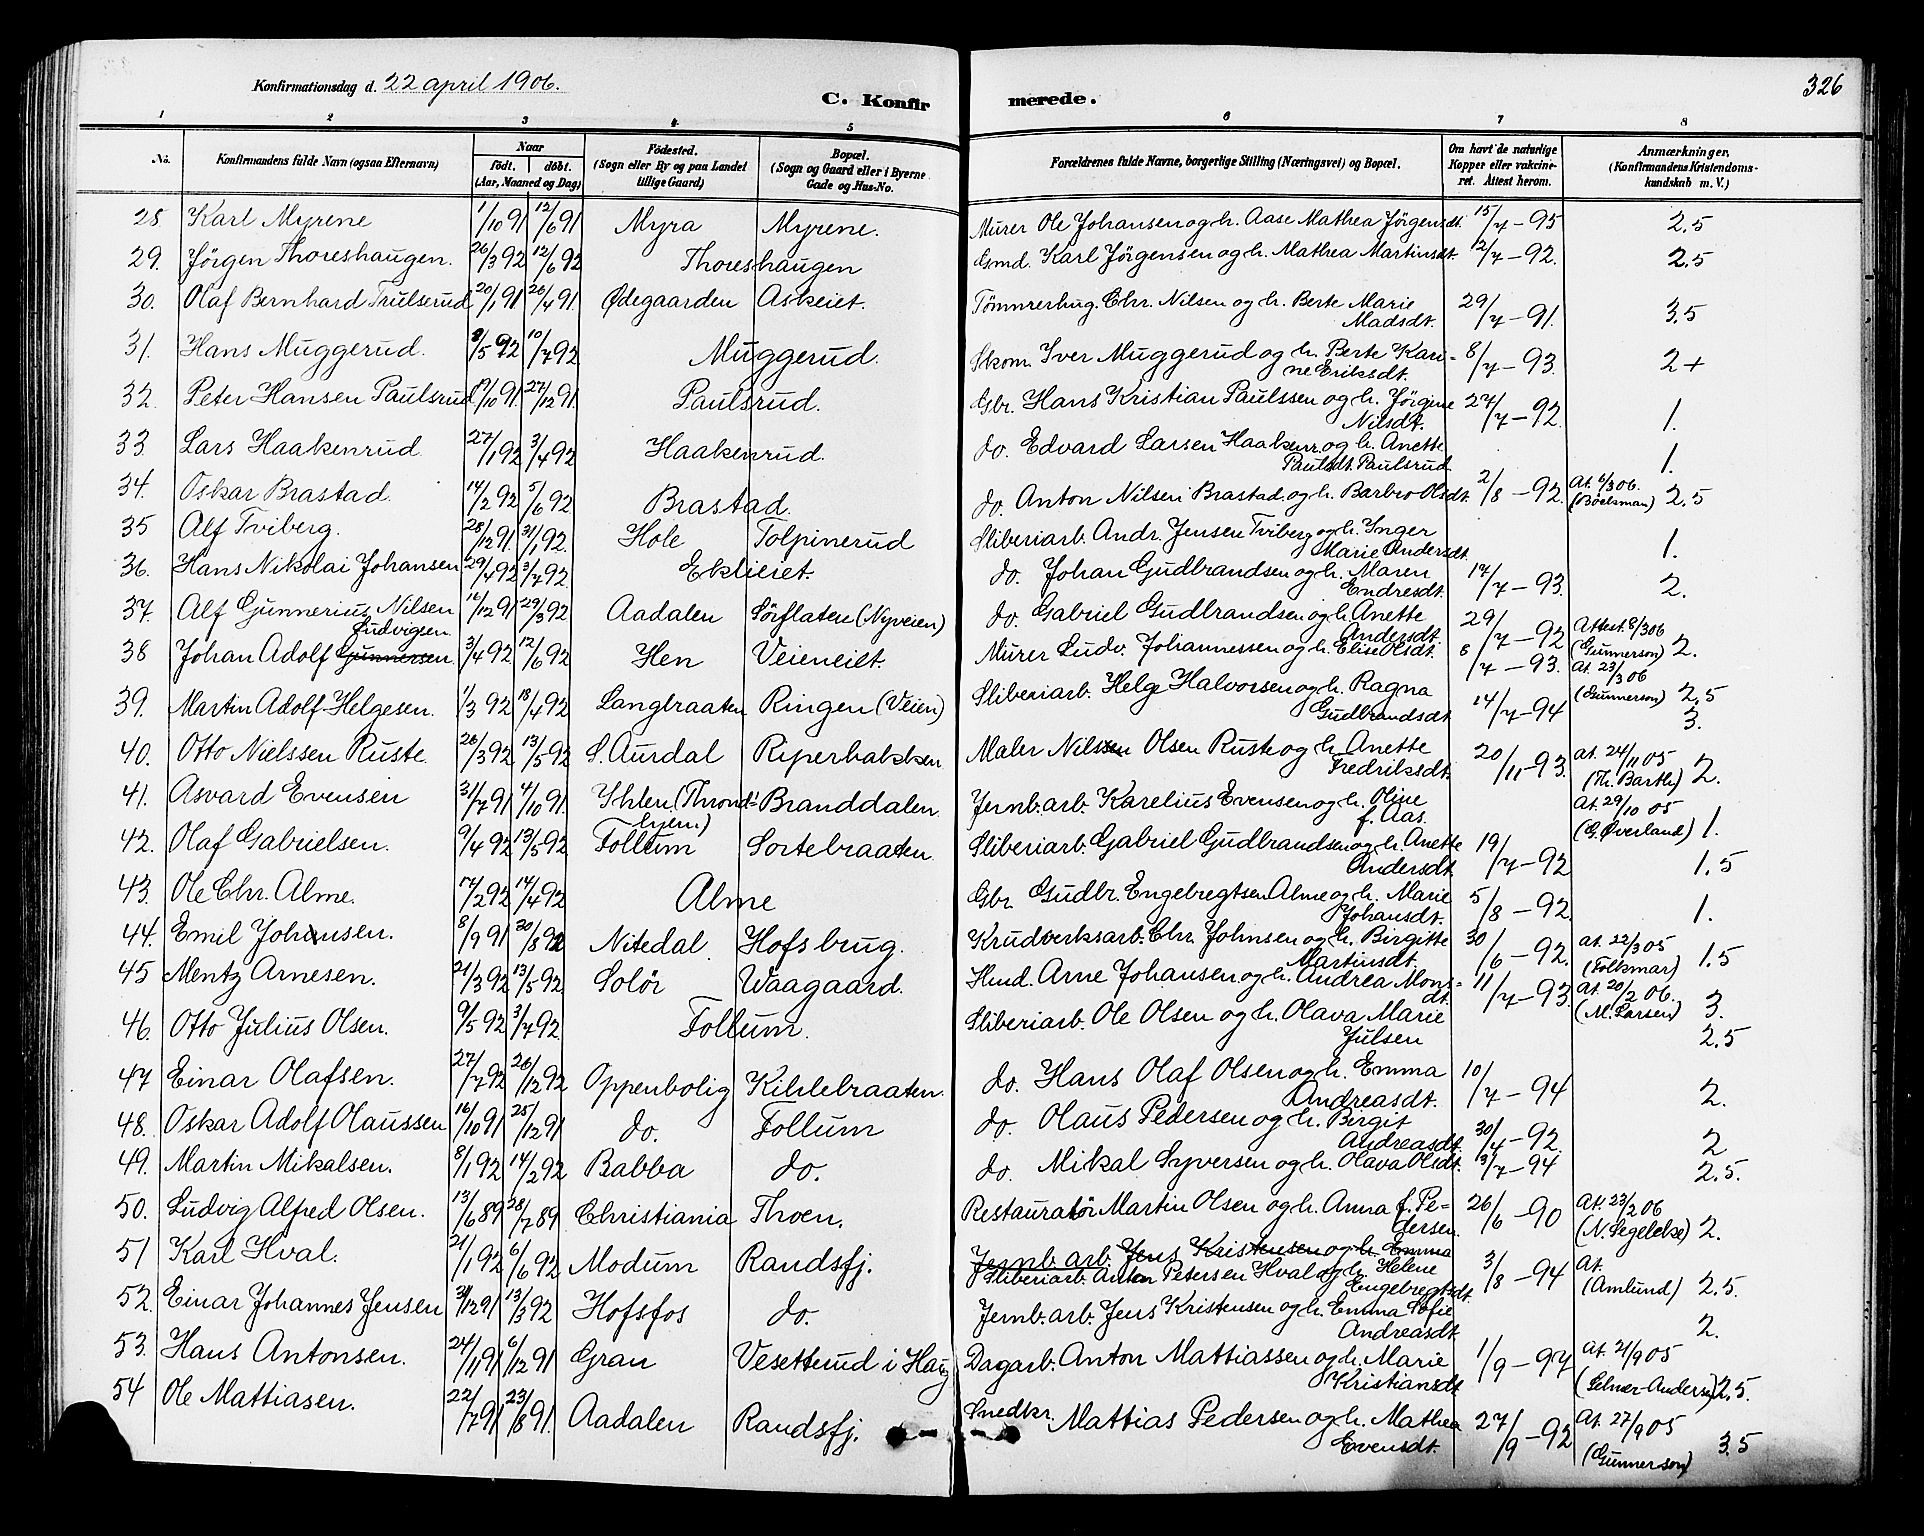 326
Konfirmationsdag d. 22 april 1906.
C. Konfirmerede.
1 2 3 4 5 6 7 8
No. Konfirmandens fulde Navn (ogsaa Efternavn) Naar født. døbt. (Aar, Maaned og Dag) Födested. (Sogn eller By og paa Landet tillige Gaard) Bopæl. (Sogn og Gaard eller i Byerne Gade og Hus-No. Forældrenes fulde Navne, borgerlige Stilling (Næringsvei) og Bopæl. Om havt de naturlige Kopper eller vakcineret. Attest herom. Anmærkninger, (Konfirmandens Kristendomskundskab m. V.)
28 Karl Myrene 1/10 91 12/6 91 Myra Myrene. Murer Ole Johansen og h. Aase Mathea Jörgensdt. 15/7 – 95 2.5
29. Jörgen Thoreshaugen. 26/3 92 12/6 92 Thoreshaugen Gmd. Karl Jörgensen og h. Mathea Martinsdt. 12/7 – 92. 2.5
30. Olaf Bernhard Trulserud 20/1 91 26/4 91. Ødegaarden Askeiet. Tömmerhug. Chr. Nilsen og h. Berte Marie Madsdt. 29/7 – 91. 3.5
31. Hans Muggerud. 8/5 92 10/7 92 Muggerud. Skom. Iver Muggerud og h. Berte Karine Eriksdt. 8/7 – 93. 2+
32. Peter Hansen Paulsrud 19/10 91. 27/12 91. Paulsrud. Gbr. Hans Kristian Paulssen og h. Jörgine Nilsdt. 27/7 – 92. 1.
33 Lars Haakenrud. 27/1 92 3/4 92 Haakenrud. do. Edvard Larsen Haakenr. og h. Anette Paulsdt. Paulsrud. 1.
34. Oskar Brastad. 14/2 92 5/6 92 Brastad. do. Anton Nilsen Brastad. og h. Barbro Olsdt. 2/8 – 92. At. 6/3 06. (Böelsman) 2.5
35 Alf Tviberg. 28/12 91. 31/1 92. Hole Tolpinerud Sliberiarb. Andr. Jensen Tviberg og h. Inger Marie Andersdt. 1.
36. Hans Nikolai Johansen 29/4 92 3/7 92. Eklieiet. do. Johan Gudbrandsen og h. Maren Endresdt. 17/7 – 93. 2.
37. Alf Gunnerius Nilsen 16/12 91 29/3 92 Aadalen Sörflaten (Nyveien) do. Gabriel Gudbrandsen og h. Anette Andersdt. 29/7 – 92 Attest. 8/3 06 (Gunnerson) 2.
38 Johan Adolf Gunnersen Ludvigsen 3/4 92 12/6 92 Hen Veieneiet. Murer Ludv. Johannessen og h. Elise Olsdt. 8/7 – 93. At. 23/3 06 (Gunnerson) 2.5
39. Martin Adolf Helgesen. 1/3 92 18/4 92 Langbraaten Ringen (Veien) Sliberiarb. Helge Halvorsen og h. Ragna Gudbrandsdt. 14/7 – 94 3.
40. Otto Nielssen Ruste. 26/3 92 13/5 92 S. Aurdal Riperbakken Maler Nils Olsen Ruste og h. Anette Fredriksdt. 20/11 – 93. at. 24/11 05 (Th. Barth) 2.
41. Asvard Evensen 31/7 91 4/10 91. Ihlen (Throndhjem) Branddalen. Jernb. arb. Karelius Evensen og h. Oline f. Aas. At. 29/10 05 (G. Øverland) 1.
42. Olaf Gabrielsen. 9/4 92 13/5 92 Follum Sortebraaten. Sliberiarb. Gabriel Gudbrandsen og h. Anette Andersdt. 19/7 – 92 1.5
43. Ole Chr. Alme. 17/2 92 14/4 92 Alme Gbr. Gudbr. Engebregtsen Alme og h. Marie Johansdt. 5/8 – 92. 1.
44. Emil Johnsen. 8/9 91 30/8 92 Nitedal Hofsbrug. Krudverksarb. Chr. Johnsen og h. Birgitte Martinsdt. 30/6 – 92. at. 22/3 05 (Folkmar) 1.5
45 Mentz Arnesen. 21/3 92 13/5 92 Solör Waagaard. Hmd. Arne Johansen og h. Andrea Monsdt. 11/7 – 93. At. 20/2 06. (M. Larsen) 3.
46. Otto Julius Olsen. 9/5 92 3/7 92. Follum. Sliberiarb. Ole Olsen og h. Olava Marie Julsen 2.5
47 Einar Olafsen. 27/7 92 26/12 92 Oppenbolig Kihlebraaten. do. Hans Olaf Olsen og h. Emma Andreasdt. 10/7 – 94 2.
48. Oskar Adolf Olaussen 16/10 91 25/12 91 do. Follum do. Olaus Pedersen og h. Birgit Andreasdt. 30/4 – 92. 2
49. Martin Mikalsen. 8/1 92 14/2 92 Babba do. do. Mikal Syversen og h. Olava Olsdt. 13/7 – 94 2.5.
50. Ludvig Alfred Olsen. 13/6 89 28/7 89 Christiania Thoen. Restauratör Martin Olsen og h. Anna f. Pedersen. 26/6 – 90 At. 23/2 06 (N. Segelcke) 2.
51 Karl Hval. 21/1 92 6/6 92 Modum Randsfj. Jernb. arb. Jens Kristensen og h. Emma Sliberiarb. Anton Petersen Hval og h. Helene Engebregtsdt. 3/8 – 94 At. (Amlund) 2.5.
52. Einar Johannes Jensen 31/12 91 13/3 92 Hofsfos do. Jernb. arb. Jens Kristensen og h. Emma Sofie Andreasdt. 2.
53. Hans Antonsen. 24/11 91 6/12 91 Gran Vesetterud i Haug Dagarb. Anton Mattiassen og h. Marie Kristiansdt. 1/9 – 97 at. 21/9 05 2.5.
54 Ole Mattiasen. 22/7 91 23/8 91. Aadalen Randsfj. Snedkr. Mattias Pedersen og h. Mathea Evensdt. 27/9 – 92 At. 27/9 05 (Gunnerson) 3.5